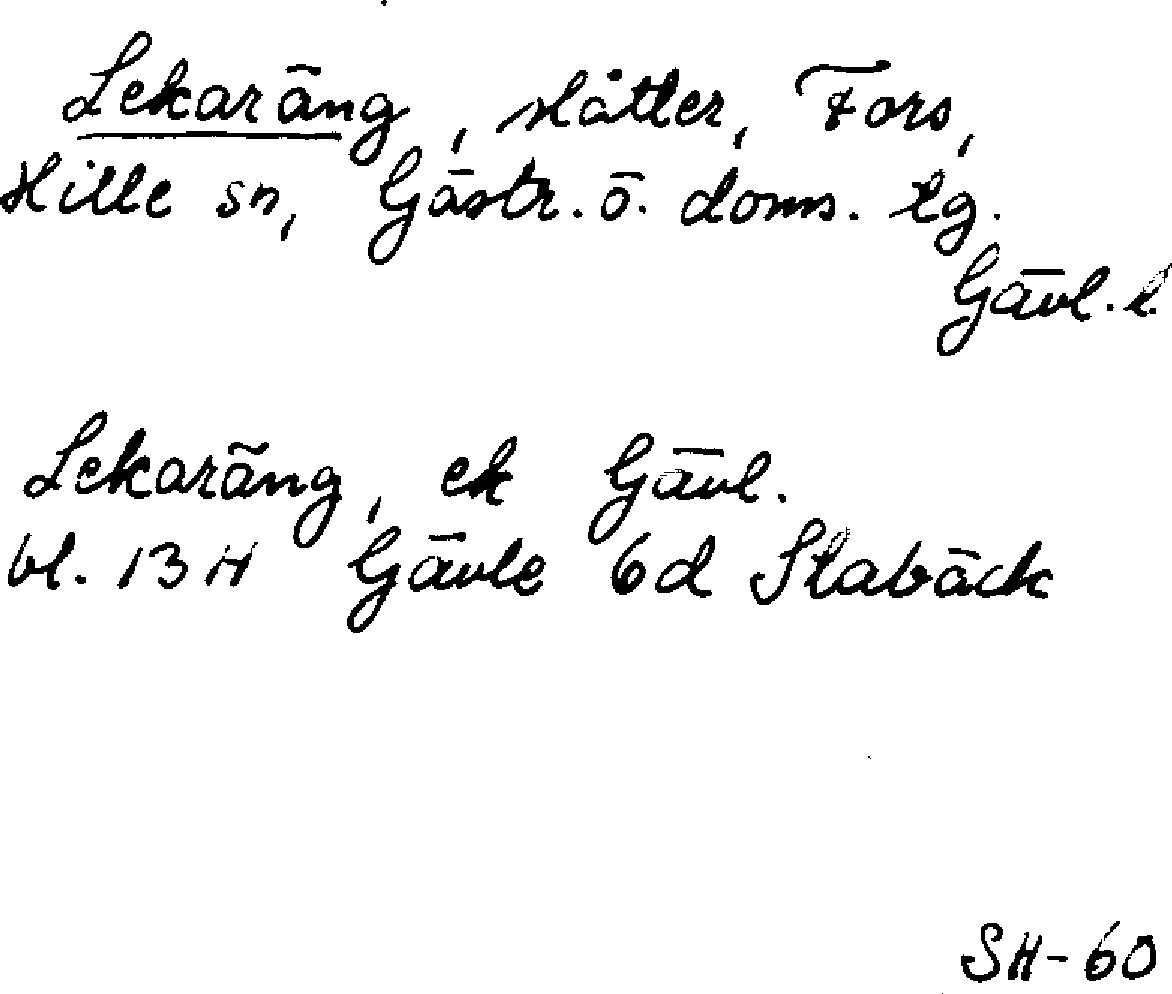 Lekaräng, slåtter, Fors,
Hille sn, Gästr. ö. doms. tg.
Gävl. l.
Lekaräng, ek Gävl.
bl. 13 H Gävle 6d Stabäck
SH-60